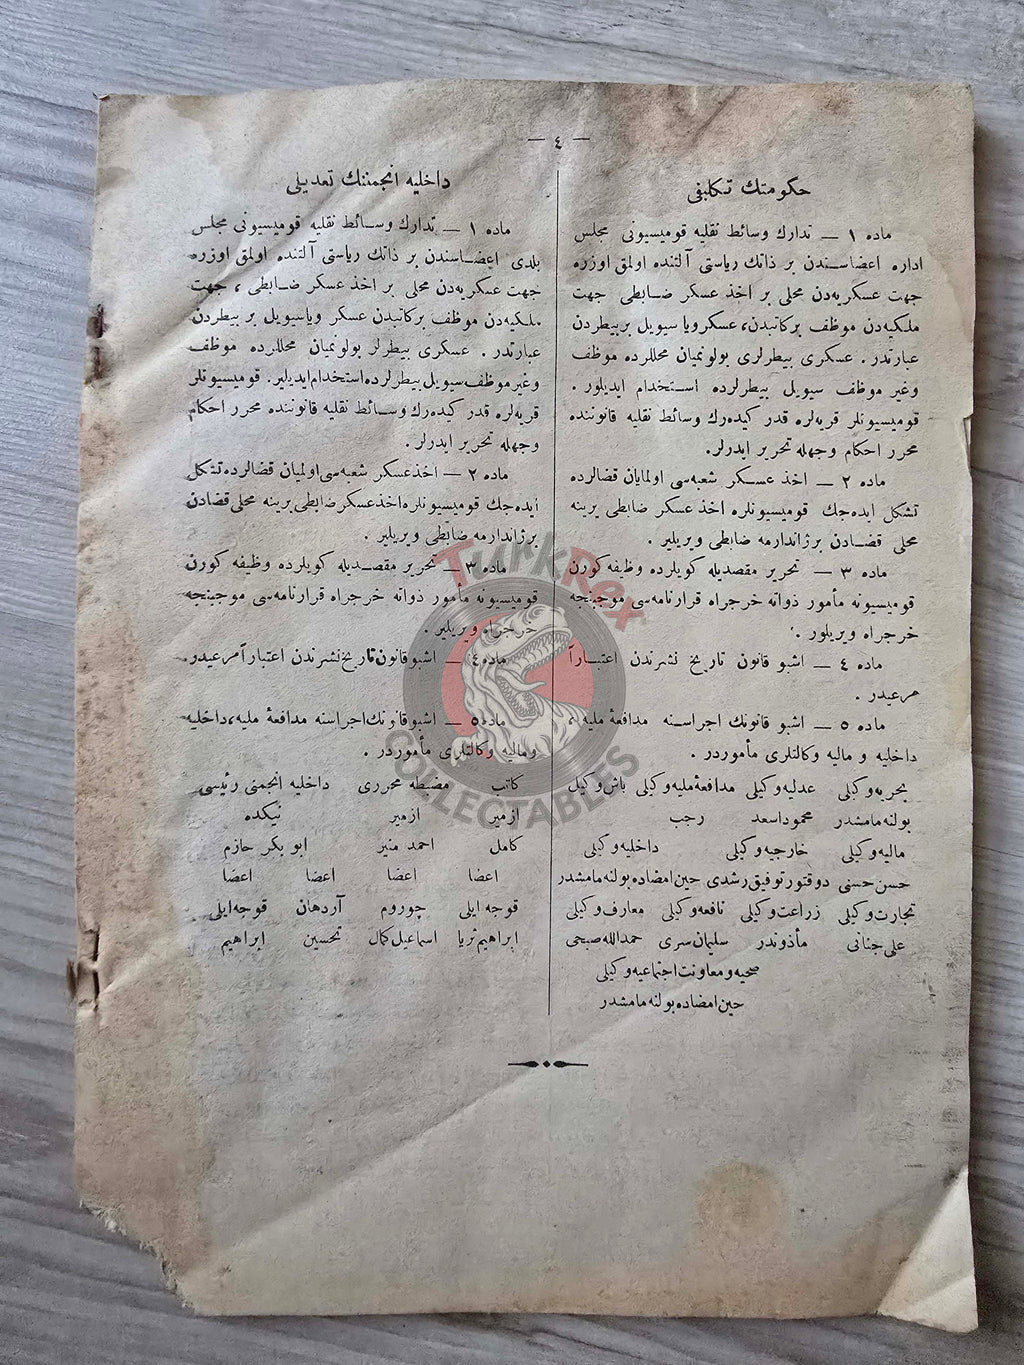 — ٤ —
حكومتك تكليفى
ماده ١ — تدارك وسائط نقليه قوميسيونى مجلس
اداره اعضاسندن بر ذاتك رياستى آلتنده اولمق اوزره
جهت عسكريه‌دن محلى بر اخذ عسكر ضابطى جهت
ملكيه‌دن موظف بركاتبدن، عسكرويا سيويل بربيطردن
عبارتدر . عسكرى بيطرلرى بولونميان محللرده موظف
وغير موظف سيويل بيطرلرده استخدام ايديلور .
قوميسيونلر قريه‌لره قدر كيده‌رك وسائط نقليه قانوننده
محرر احكام وجهله تحرير ايدرلر.
ماده ٢ — اخذ عسكر شعبه‌سى اولمايان قضالرده
تشكل ايده‌جك قوميسيونلره اخذ عسكر ضابطى يرينه
محلى قضادن برژاندارمه ضابطى ويريلير .
ماده ٣ — تحرير مقصديله كويلرده وظيفه كورن
قوميسيونه مأمور ذواته خرجراه قرارنامه‌سى موجبنجه
خرجراه ويريلور .
ماده ٤ — اشبو قانون تاريخ نشرندن اعتباراً
مرعيدر .
ماده ٥ — اشبو قانونك اجراسنه مدافعۀ مليه ،
داخليه و ماليه وكالتلرى مأموردر .
بحريه وكيلى عدليه وكيلى مدافعۀ مليه وكيلى باش وكيل
بولنه‌مامشدر محمود اسعد رجب
ماليه وكيلى خارجيه وكيلى داخليه وكيلى
حسن حسنى دوقتور توفيق رشدى حين امضاده بولنه‌مامشدر
تجارت وكيلى زراعت وكيلى نافعه وكيلى معارف وكيلى
على جنانى مأذوندر سليمان سرى حمدالله صبحى
صحيه و معاونت اجتماعيه وكيلى
حين امضاده بولنه‌مامشدر
داخليه انجمننك تعديلى
ماده ١ — تدارك وسائط نقليه قوميسيونى مجلس
بلدى اعضاسندن بر ذاتك رياستى آلتنده اولمق اوزره
جهت عسكريه‌دن محلى بر اخذ عسكر ضابطى ، جهت
ملكيه‌دن موظف بركاتبدن عسكر وياسيويل بر بيطردن
عبارتدر . عسكرى بيطرلر بولونميان محللرده موظف
وغيرموظف سيويل بيطرلرده استخدام ايديلير. قوميسيونلر
قريه‌لره قدر كيده‌رك وسائط نقليه قانوننده محرر احكام
وجهله تحرير ايدرلر .
ماده ٢ — اخذعسكر شعبه‌سى اولميان قضالرده تشكل
ايده‌جك قوميسيونلره اخذعسكر ضابطى يرينه محلى قضادن
برژاندارمه ضابطى ويريلير .
ماده ٣ — تحرير مقصديله كويلرده وظيفه كورن
قوميسيونه مأمور ذواته خرجراه قرارنامه‌سى موجبنجه
خرجراه ويريلير .
ماده ٤ — اشبو قانون تاريخ نشرندن اعتباراً مرعيدر.
ماده ٥ — اشبو قانونك اجراسنه مدافعۀ مليه، داخليه
وماليه وكالتلرى مأموردر .
كاتب مضبطه محررى داخليه انجمنى رئيسى
ازمير ازمير نيكده
كامل احمد منير ابو بكر حازم
اعضا اعضا اعضا اعضا
قوجه ايلى چوروم آردهان قوجه ايلى
ابراهيم ثريا اسماعيل كمال تحسين ابراهيم
TurkRex
COLLECTABLES